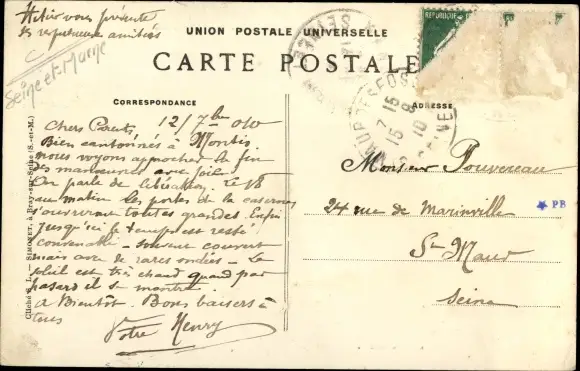 vous présente
amitiés
Seine-et-Marne
UNION POSTALE UNIVERSELLE
CARTE POSTALE
REPUBLIQUE
CORRESPONDANCE
ADRESSE
12/7bre 010
Chers Parents
Bien cantonnés à
nous voyons approcher la fin
des manœuvres avec joie.
On parle de libération. Le 18
au matin les portes de la caserne
s'ouvriront toutes grandes. Enfin
jusqu'ici le temps est resté
convenable souvent couvert
mais avec de rares ondées - Le
soleil est très chaud quand par
hasard il se montre.
A Bientôt. Bons baisers à
tous
Votre Henry
Monsieur Pouvereau
24 rue de Marinville
St Maur
Seine
PB
Cliché S. L. — SIMONET, à Bray-sur-Seine (S.-et-M.)
15 - 7
15 8
10
SEINE